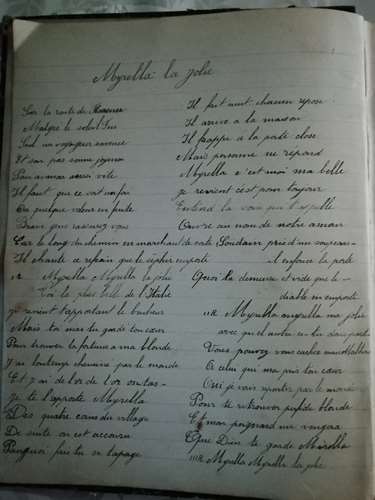 Myrella la jolie
Sur la route de Florence
Malgré le soleil
Seul un voyageur
Et son pas sonne joyeux
Pour arriver aussi vite
Il faut que ce soit un fou
Ou quelque voleur en fuite
Brave que
Car le long du chemin en marchant de
Il chante ce refrain que le zéphir emporte
R Myrella Myrella la jolie
Toi la plus bell de l'Italie
je revient t'apportant le bonheur
Mais toi mas tu gardé ton cœur
Pour trouver la fortune a ma blonde
J'ai lontemps cheminé par le monde
Et j'ai de l'or de l'or en tas
Je te l'aporte Myrella
Des quatre coins du village
De suite on est accouru
Il fait nuit chacun repose
Il arrive a la maison
Il frappe a la porte close
Mais personne ne répond
Myrella c'est moi ma belle
je revient c'est pour toujour
Entend la voix qui t'appelle
Ouvre au nom de notre amour
Soudain pris d'un soupcon
il enfonce la porte
Quoi la demeure est vide que le
diable m'emporte
Myrella Myrella ma jolie
avec quel autre es tu donc partie
Vous pouvez vous cacher
A celui qui ma pris ton cœur
Oui je vais repartir par le monde
Pour te retrouver blonde
Et mon poignard me vengera
Que Dieu te garde Myrella
Myrella Myrella la jolie